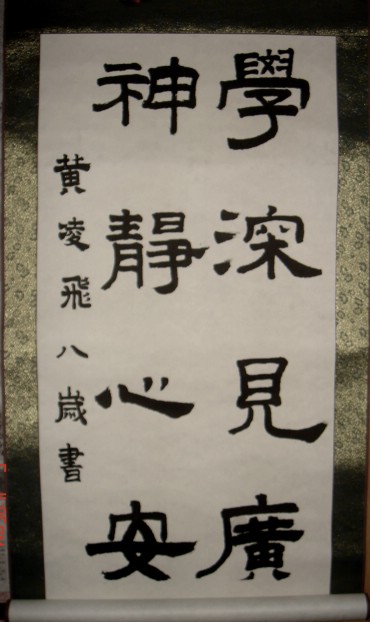 學深見廣
神靜心安
黃凌飛八歲書